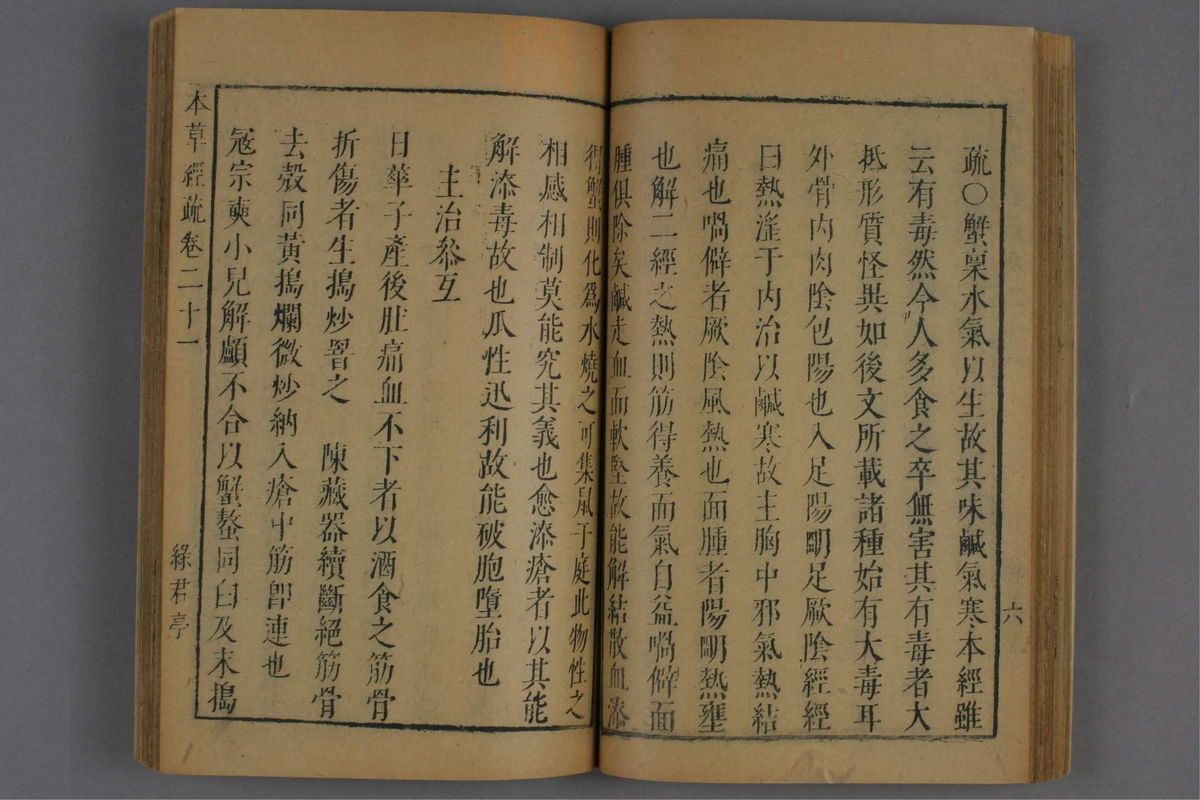 疏○蟹稟水氣以生故其味鹹氣寒本經雖
云有毒然今人多食之卒無害其有毒者大
抵形質怪異如後文所載諸種始有大毒耳
外骨內肉陰包陽也入足陽明足厥陰經經
曰熱淫于內治以鹹寒故主胸中邪氣熱結
痛也喎僻者厥陰風熱也面腫者陽明熱壅
也解二經之熱則筋得養而氣自益喎僻面
腫俱除矣鹹走血而軟堅故能解結散血漆
得蟹則化爲水燒之可集鼠于庭此物性之
相感相制莫能究其義也愈漆瘡者以其能
解漆毒故也瓜性迅利故能破胞墮胎也
主治叅互
日華子產後肚痛血不下者以酒食之筋骨
折傷者生搗炒罯之 陳藏器續斷絕筋骨
去殼同黃搗爛微炒納入瘡中筋卽連也
寇宗奭小兒解顱不合以蟹螯同白及末搗
本草經疏卷二十一
綠君亭
六